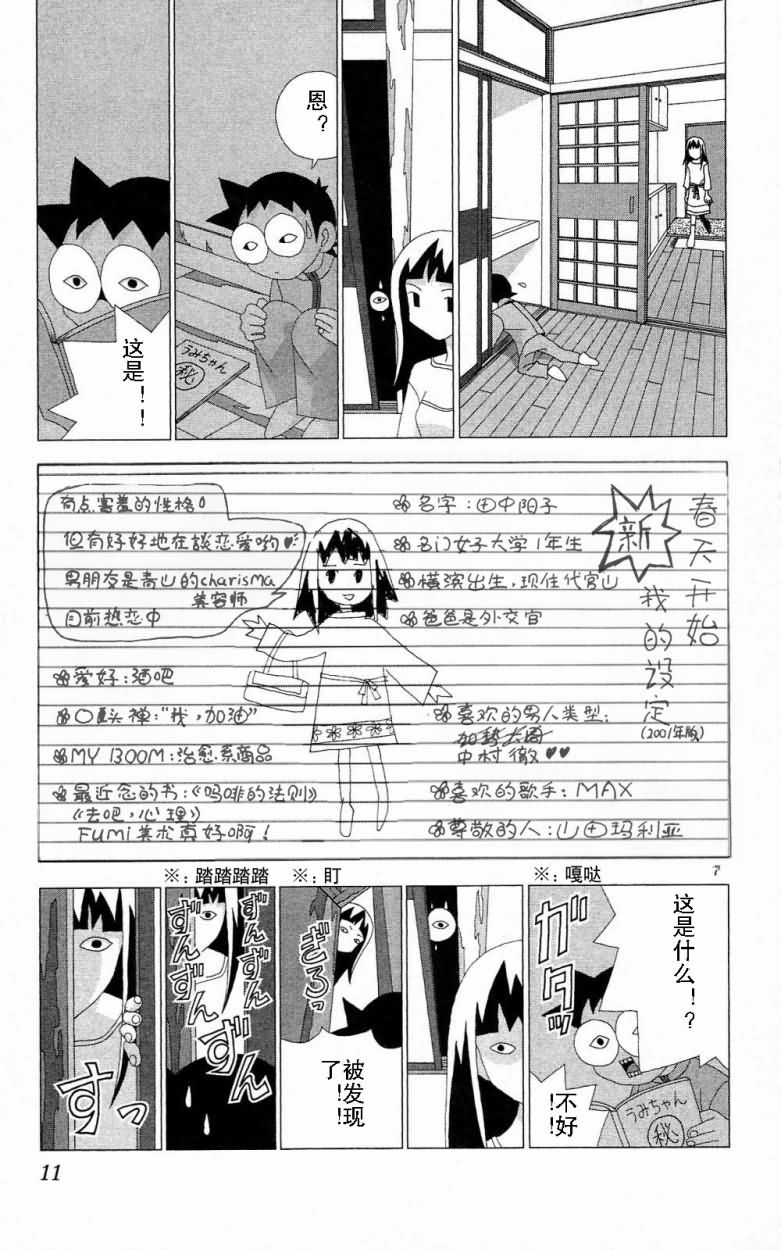 恩?
うみちゃん
秘
这是!!
春天开始
我的设定
(2001年版)
新
名字:田中阳子
名门女子大学1年生
横滨出生,现住代官山
爸爸是外交官
喜欢的男人类型:
中村徹♥♥
喜欢的歌手:MAX
尊敬的人:山田玛利亚
有点害羞的性格
但有好好地在談恋爱哟♥
男朋友是青山的charisma
美容师
目前热恋中
爱好:酒吧
口头禅:“我,加油”
MY BOOM:治愈系商品
最近念的书:《吗啡的法则》
《去吧,心理》
Fumi美术真好啊!
7
※:嘎哒
这是什么!?
ガタッ
不好!
うみちゃん
秘
※:盯
ぎろっ
被发现了!!
※:踏踏踏踏
ずんずんずんずん
すっ
11